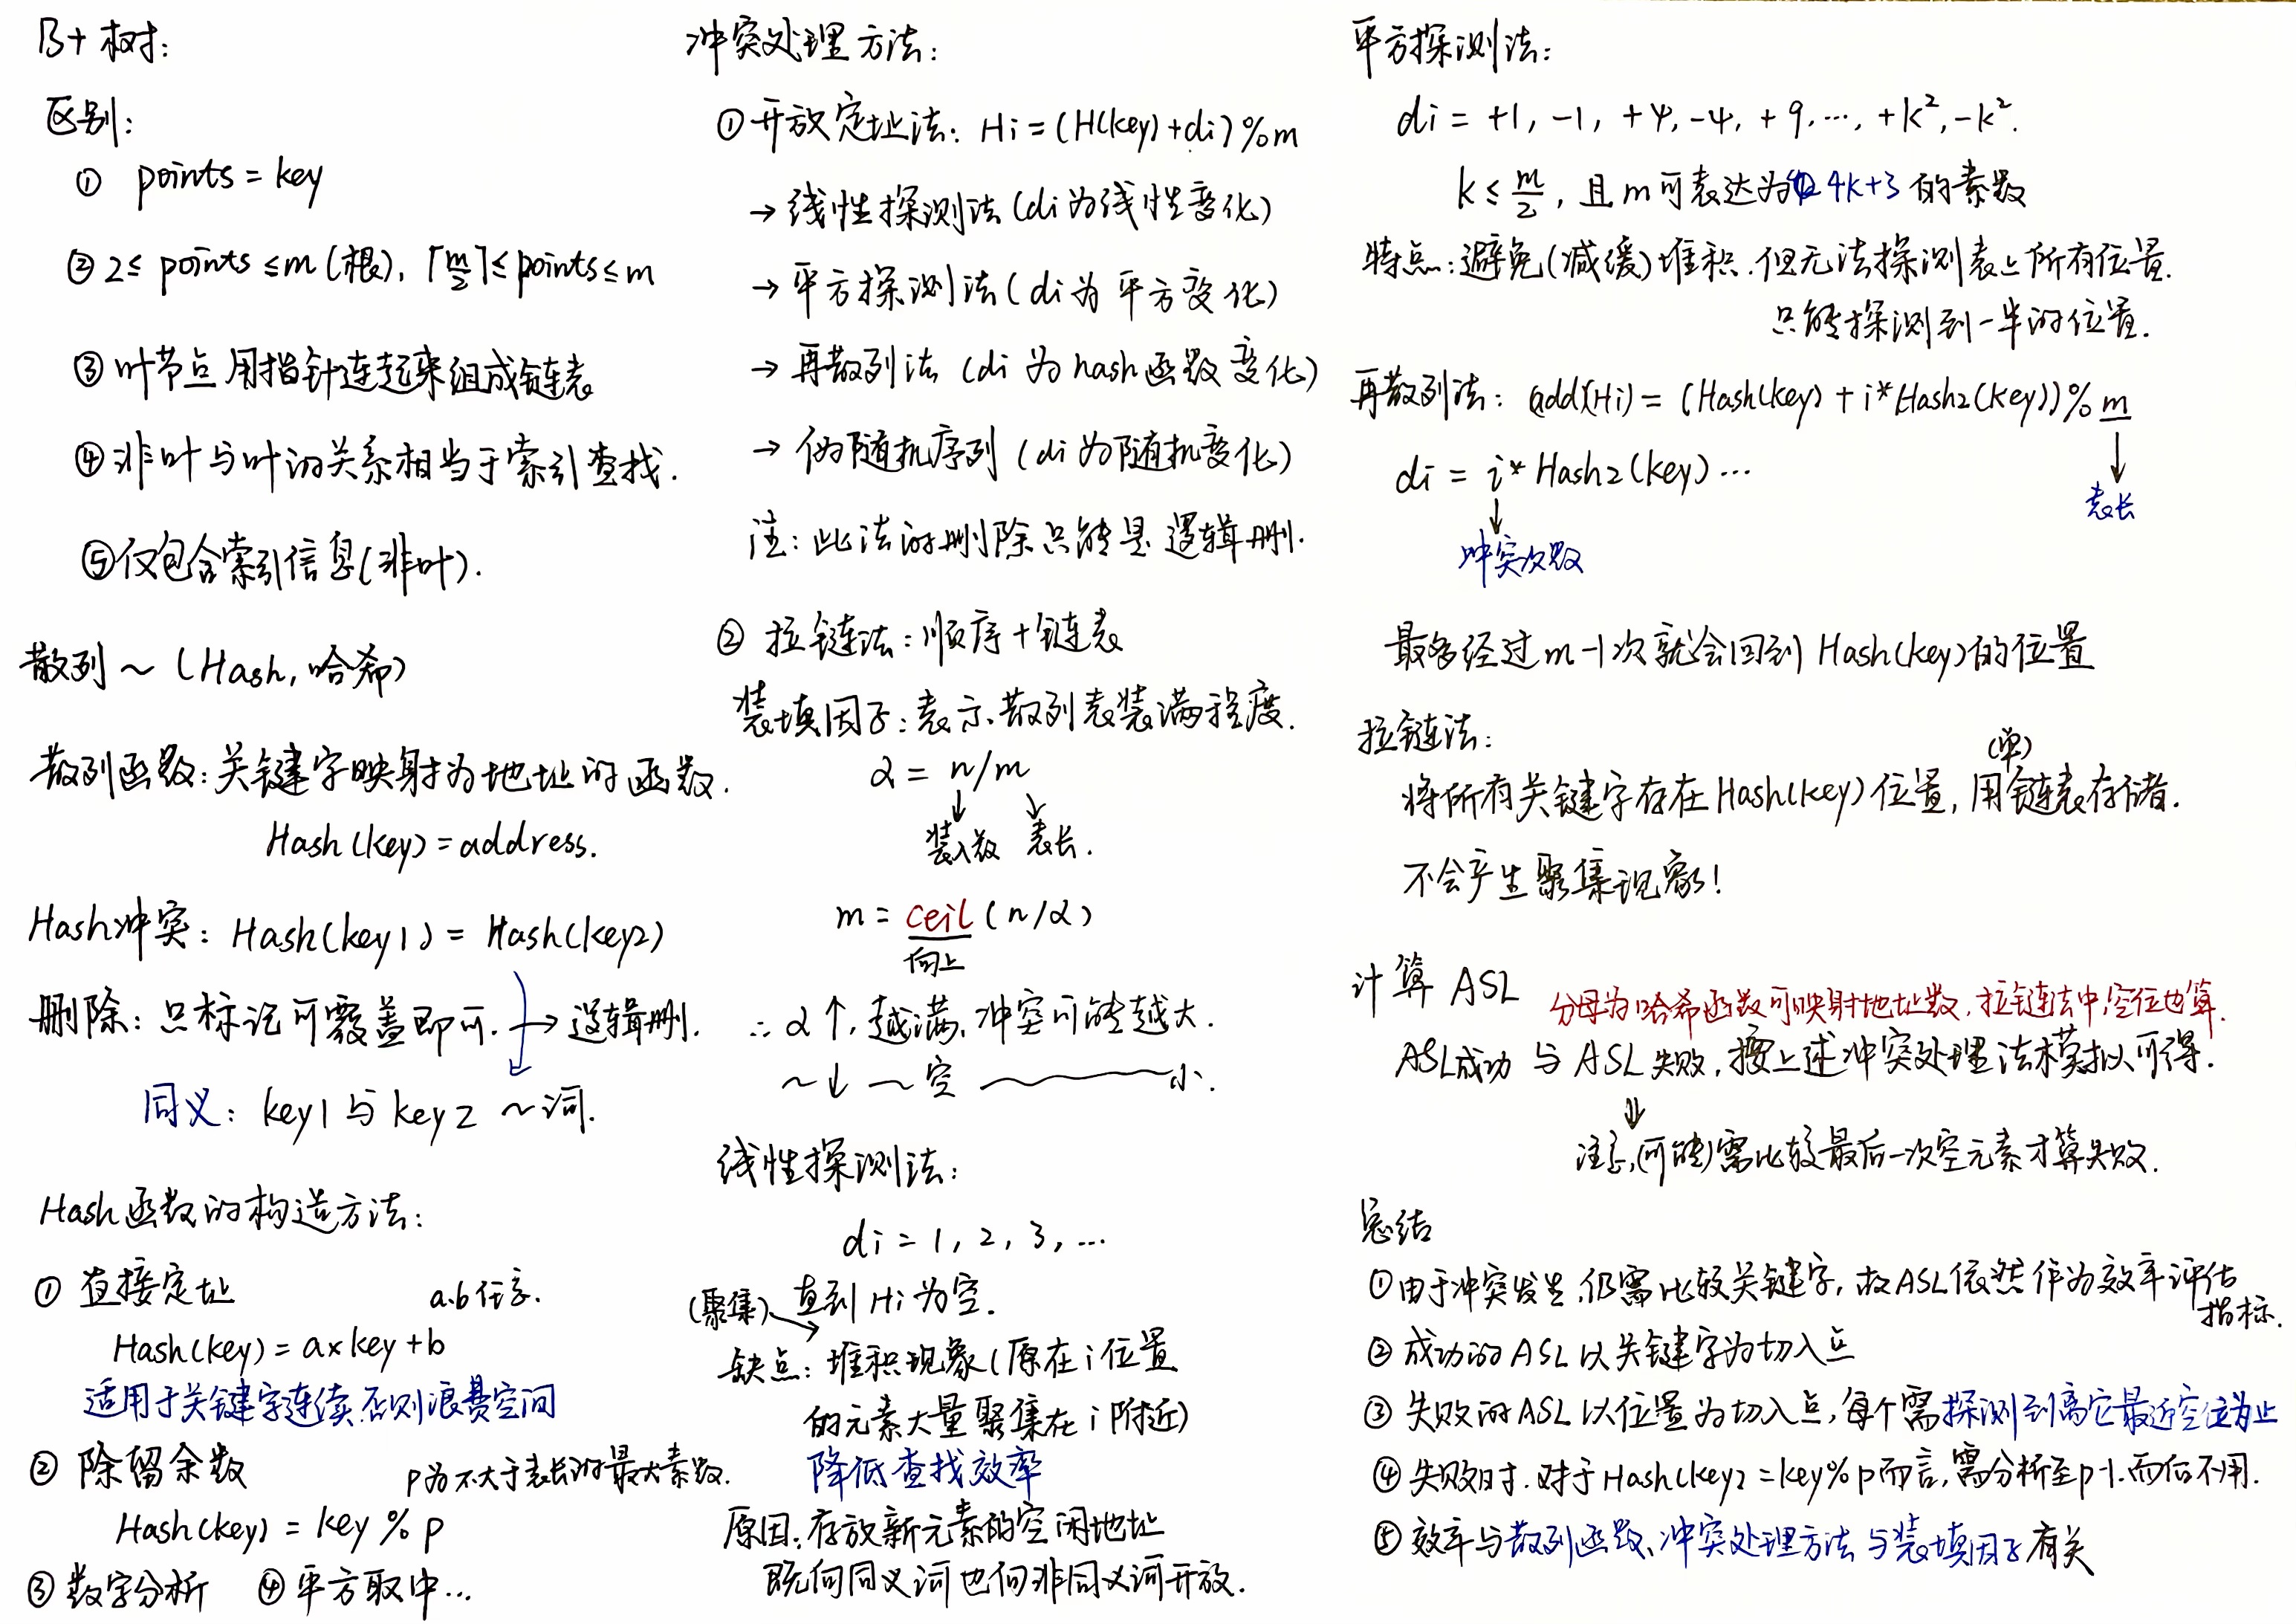 B+树：
区别：
① points = key
② 2≤ points ≤m (根)，⌈m/2⌉≤points≤m
③ 叶节点用指针连起来组成链表
④ 非叶与叶的关系相当于索引查找.
⑤ 仅包含索引信息(非叶).
散列～ (Hash, 哈希)
散列函数：关键字映射为地址的函数.
Hash(key) = address.
Hash冲突：Hash(key1) = Hash(key2)
删除：只标记可覆盖即可. → 逻辑删.
同义：key1 与 key2 ～词.
Hash函数的构造方法：
① 直接定址 a.b任意.
Hash(key) = a×key+b
适用于关键字连续.否则浪费空间
② 除留余数 p为不大于表长的最大素数.
Hash(key) = key % p
③ 数字分析 ④ 平方取中…
冲突处理方法：
① 开放定址法：Hi = (H(key)+di)%m
→ 线性探测法 (di为线性变化)
→ 平方探测法 (di为平方变化)
→ 再散列法 (di为hash函数变化)
→ 伪随机序列 (di为随机变化)
注：此法的删除只能是逻辑删.
② 拉链法：顺序+链表
装填因子：表示散列表装满程度.
α = n/m
装入数 表长.
m = ceil (n/α)
向上
∴ α↑, 越满, 冲突可能越大.
～↓ ～空 ～小.
线性探测法：
di = 1, 2, 3, …
(聚集) 直到 Hi 为空.
缺点：堆积现象 (原在i位置
的元素大量聚集在i附近)
降低查找效率
原因.存放新元素的空闲地址
既向同义词也向非同义词开放.
平方探测法：
di = +1, -1, +4, -4, +9, …, +k², -k².
k ≤ m/2，且m可表达为 4k+3 的素数
特点：避免(减缓)堆积.但无法探测表上所有位置.
只能探测到一半的位置.
再散列法：add(Hi) = (Hash(key) + i*Hash2(key))%m
di = i*Hash2(key) …
表长
冲突次数
最多经过m-1次就会回到Hash(key)的位置
拉链法：
(单)
将所有关键字存在Hash(key)位置, 用链表存储.
不会产生聚集现象!
计算 ASL 分母为哈希函数可映射地址数, 拉链法中,空位也算.
ASL成功 与 ASL失败, 按上述冲突处理法模拟可得.
注意,(可能)需比较最后一次空元素才算失败.
总结
① 由于冲突发生,仍需比较关键字, 故ASL依然作为效率评估
指标.
② 成功的ASL以关键字为切入点
③ 失败的ASL以位置为切入点, 每个需探测到离它最近空位为止
④ 失败时.对于Hash(key) = key%p而言, 需分析至p-1.而后不用.
⑤ 效率与散列函数、冲突处理方法与装填因子有关